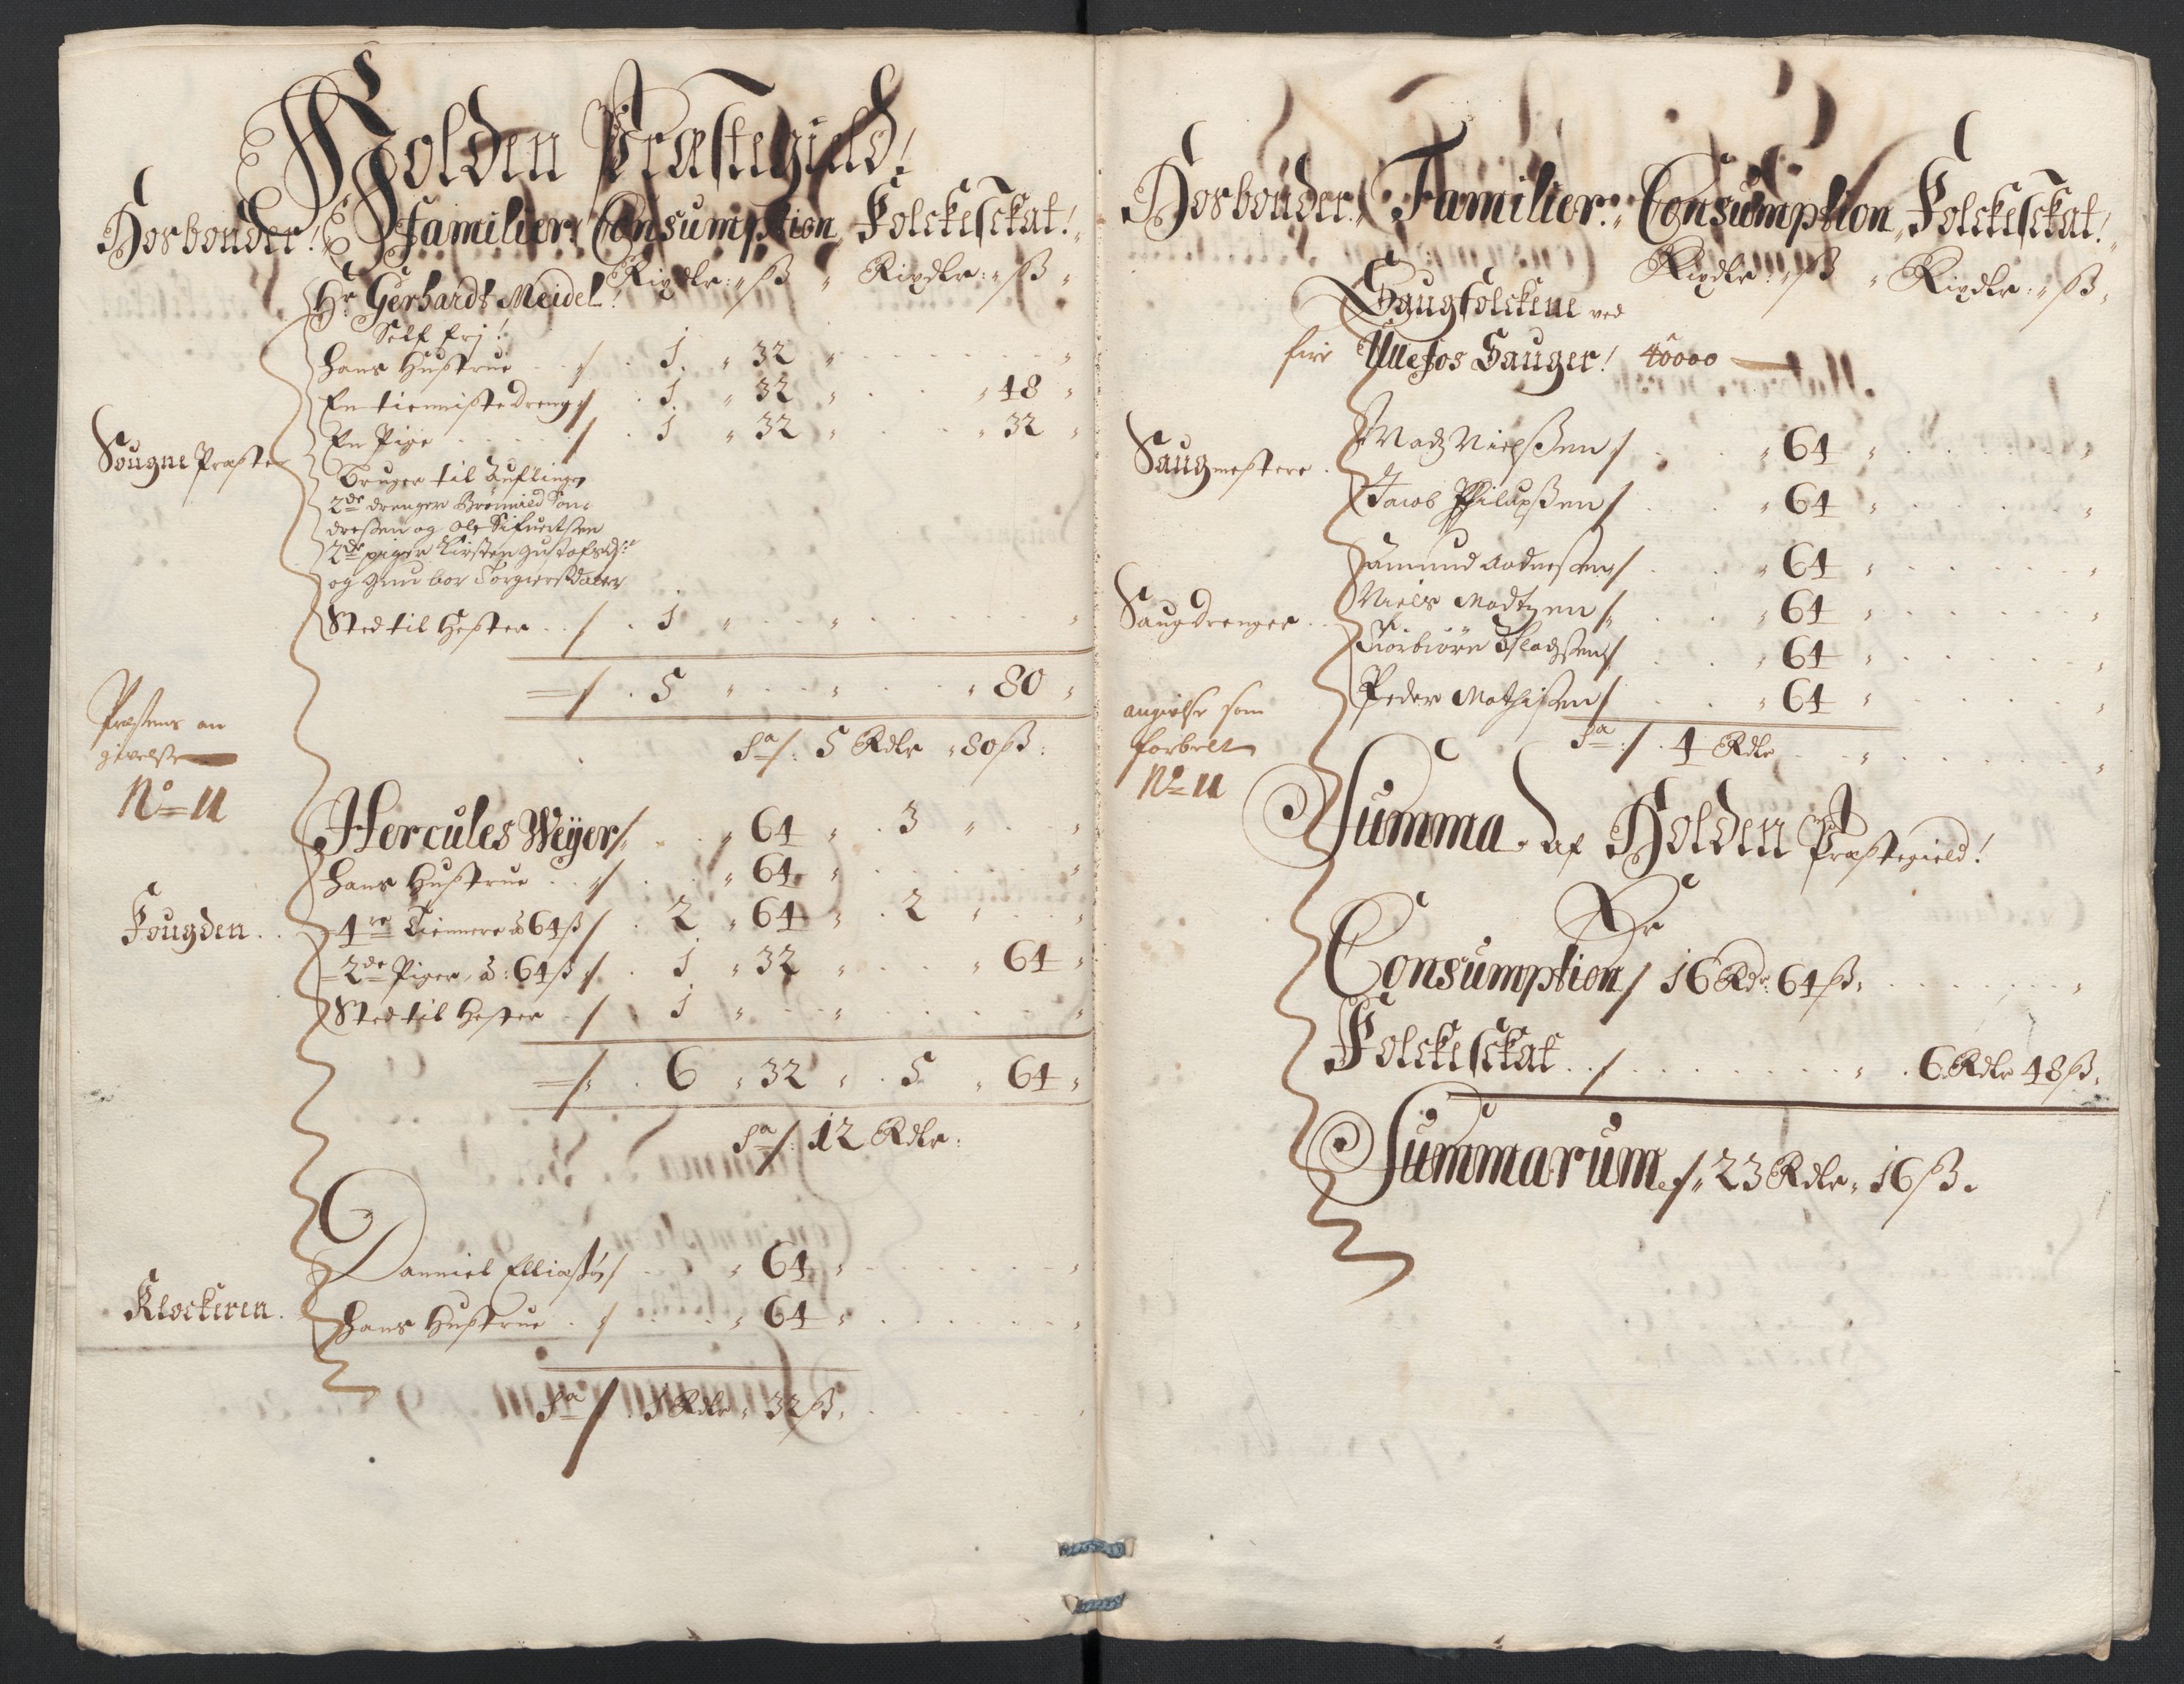 Holden Præstegield!
Hosbonder! Familier! Consumption Folckeskat!
Rixdlr: ß Rixdlr: ß
Hr Gerhardt Meidel!
Self frj!
Hans Hustrue ./. 1 32
En tienniste dreng ./. 1 32 48
Sougne Præsten
En Pige ./. 1 32 32
Bruger til Auflinge
2de drenger Brønnild Son-
dresen og Ole Sifuertsen
2de piger Kirsten Gustafsd:r
og Gunbor Torgiersdaater
Sted til Hester ./. 1
./. 5 80
Præstens an
givelse
No 11
Sa/: 5 Rdlr 80 ß:
Hercules Weÿer/. 64 3
Hans Hustrue ./. 64
Fougden.
4re Tiennere à 64 ß/. 2 64 2
2de Piger, à: 64 ß ./. 1 32 64
Sted til Hester ./. 1
./. 6 32 5 64
Sa/: 12 Rdlr:
Danniel Elliasøn/ 64
Klockeren.
Hans Hustrue ./. 64
Sa/. 1 Rdlr 32 ß.
Hosbonder! Familier: Consumption Folckeskat!
Rixdlr: ß Rixdlr: ß
Saugfolckene ved
fire Ullefos Sauger! 40000
Saugmestere.
Madz Nielsßen/. 64
Jacob Philipsßen/ 64
Saugdrenger.
Aamund Andersen/ 64
Niels Madtzen/. 64
Torbiørn Oslagsen/ 64
Peder Mathisen/ 64
angivelse som
forbelt
No 11
Sa/. 4 Rdlr
Summa af Holden Præstegield!
Er
Consumption/ 16 Rdr: 64 ß.
Folckeskat ./. 6 Rdlr 48 ß.
Summarum ./. 23 Rdlr. 16 ß.